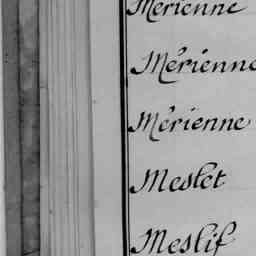 Merienne
Mérienne
Mérienne
Meslet
Meslif